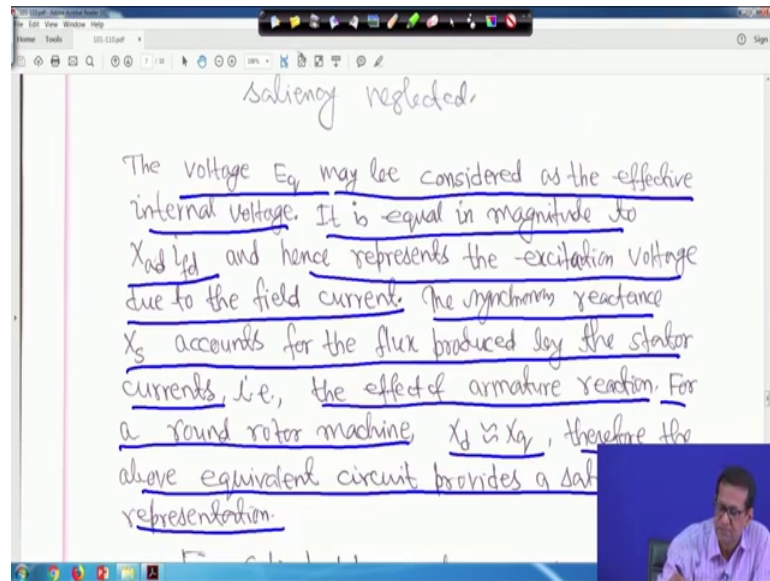 101-110.pdf - Adobe Acrobat Reader DC
File Edit View Window Help
Home Tools 101-110.pdf × Sign
saliency neglected.
The voltage Eq may be considered as the effective
internal voltage. It is equal in magnitude to
Xad ifd and hence represents the excitation voltage
due to the field current. The synchronous reactance
Xs accounts for the flux produced by the stator
currents, i.e., the effect of armature reaction. For
a round rotor machine, Xd ≈ Xq, therefore the
above equivalent circuit provides a sat
representation.